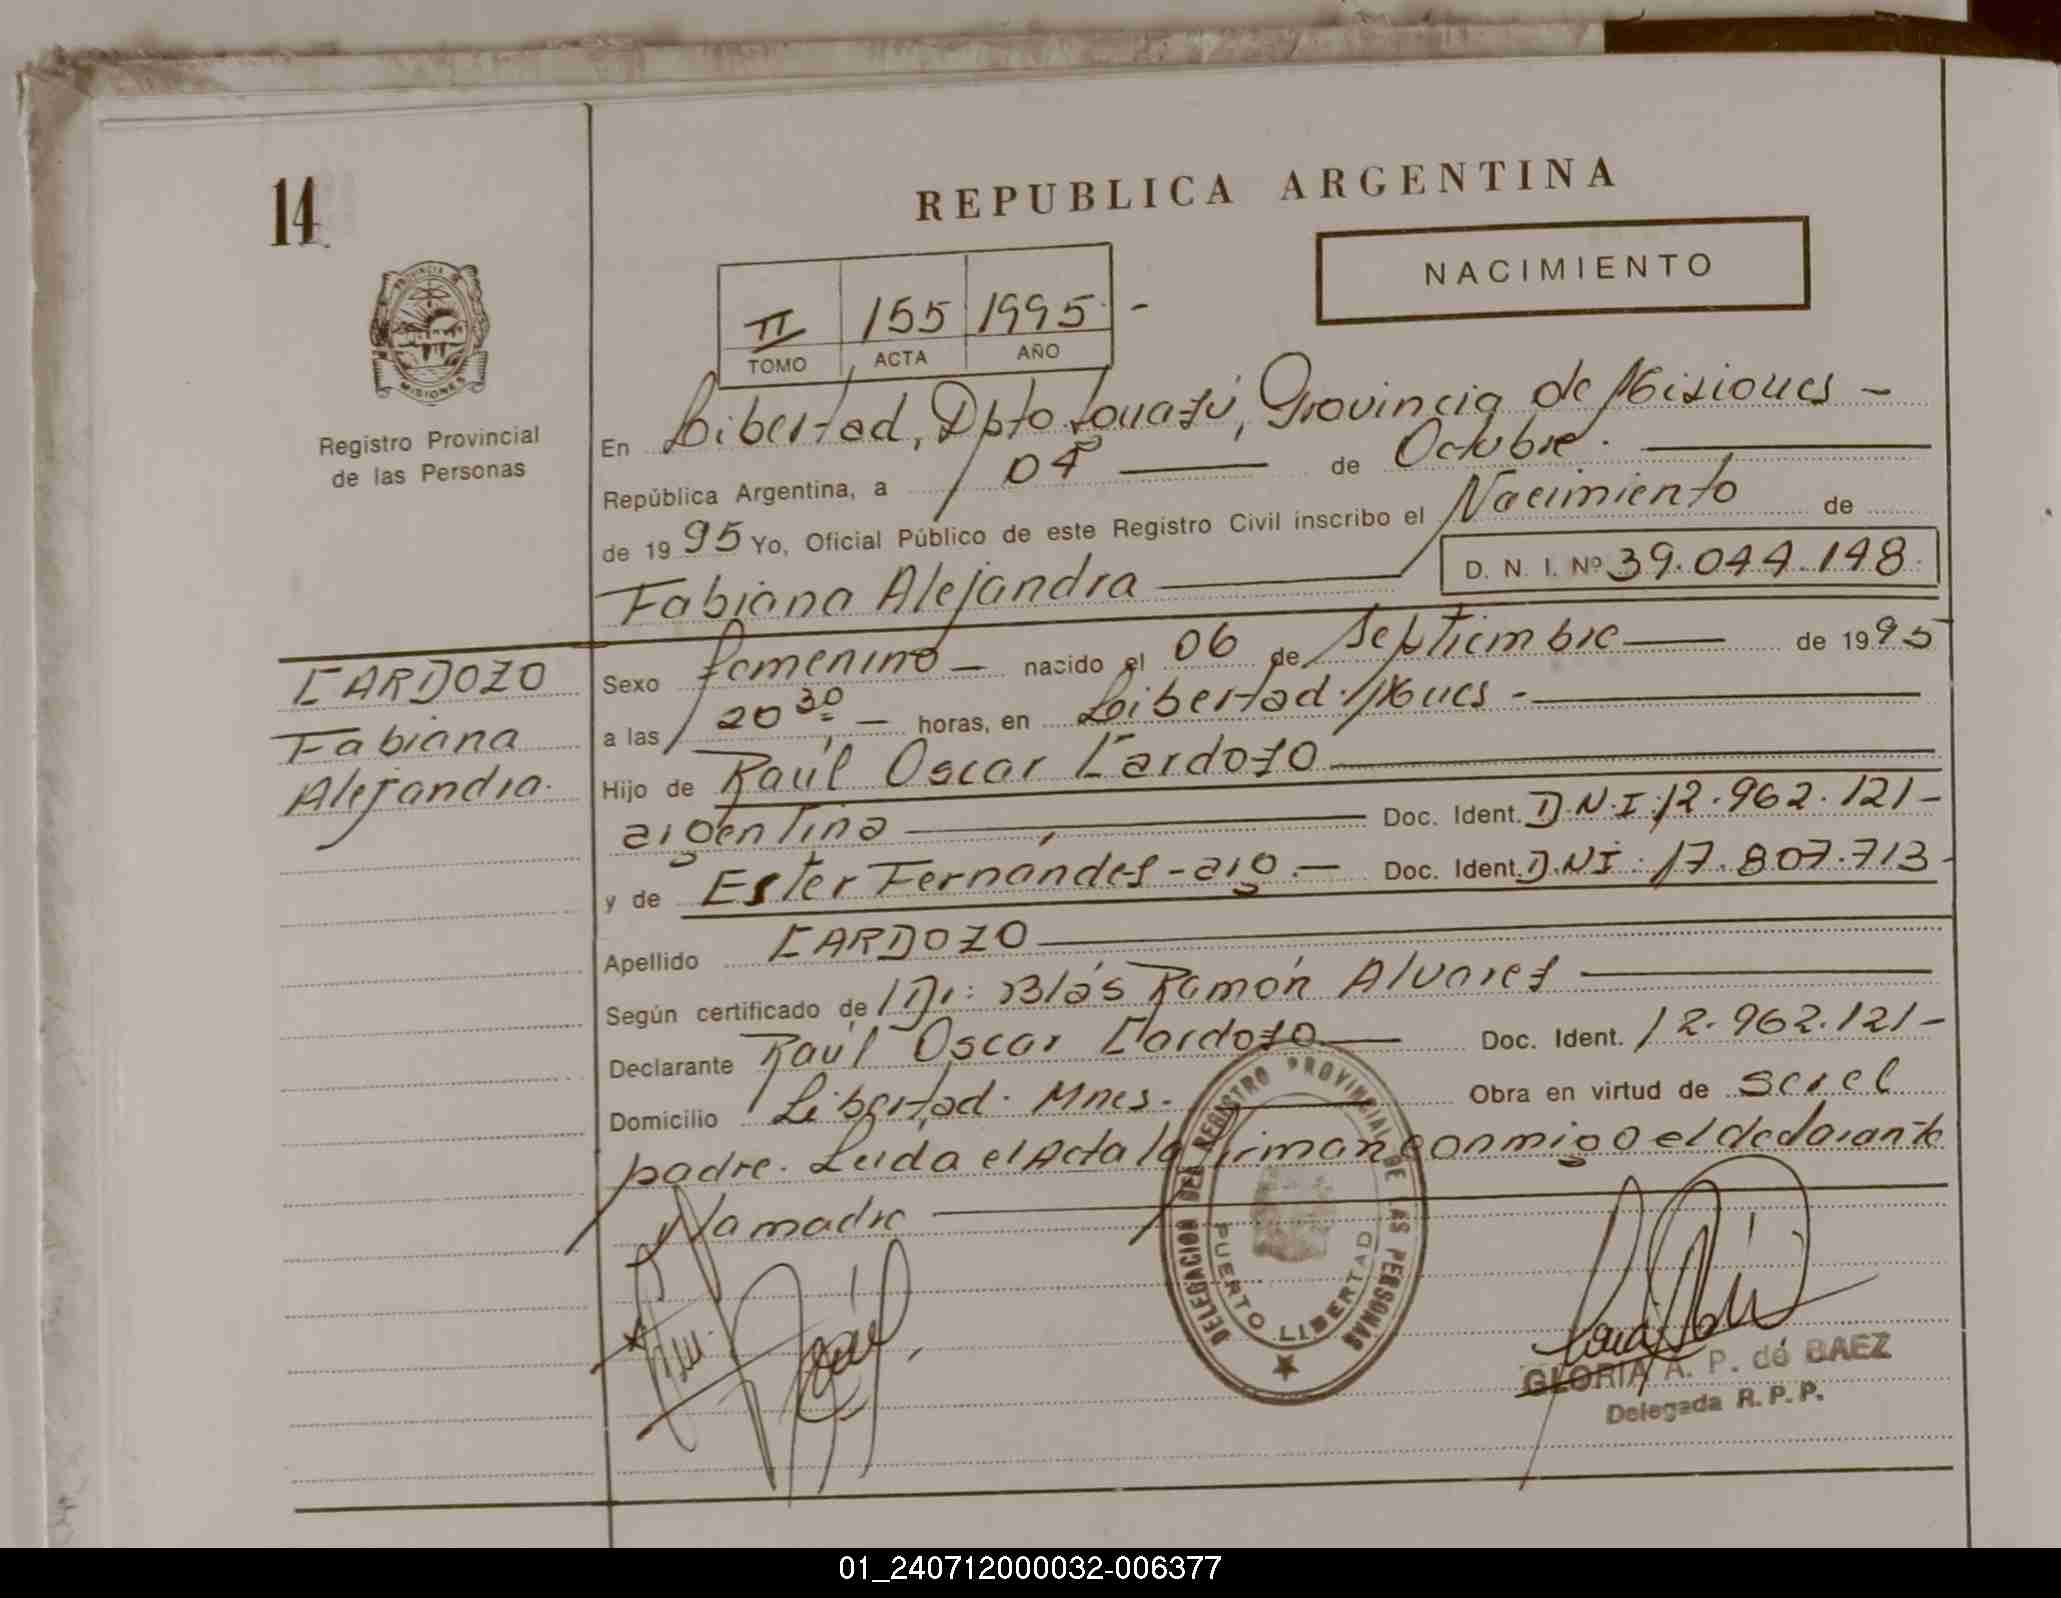 14
REPUBLICA ARGENTINA
NACIMIENTO
II 155 1995 -
TOMO ACTA AÑO
PROVINCIA DE
MISIONES
Registro Provincial
de las Personas
En Libertad, Dpto. Iguazú, Provincia de Misiones -
República Argentina, a 04 de Octubre.
de 1995 Yo, Oficial Público de este Registro Civil inscribo el Nacimiento de
Fabiana Alejandra D. N. I. Nº 39.044.148.
CARDOZO
Fabiana
Alejandra.
Sexo femenino - nacido el 06 de Septiembre de 1995
a las 20 30 - horas, en Libertad. Mnes -
Hijo de Raúl Oscar Cardozo
argentina Doc. Ident. D.N.I: 12.962.121-
y de Ester Fernández - arg. - Doc. Ident. D.NI: 17.807.713-
Apellido CARDOZO
Según certificado de Dr: Blás Ramón Alvarez
Declarante Raúl Oscar Cardozo Doc. Ident. 12.962.121-
Domicilio Libertad. Mnes. Obra en virtud de ser el
padre. Leida el Acta la firman conmigo el declarante
y la madre
DELEGACION DEL REGISTRO PROVINCIAL DE LAS PERSONAS
PUERTO LIBERTAD
GLORIA A. P. de BAEZ
Delegada R. P. P.
01_240712000032-006377